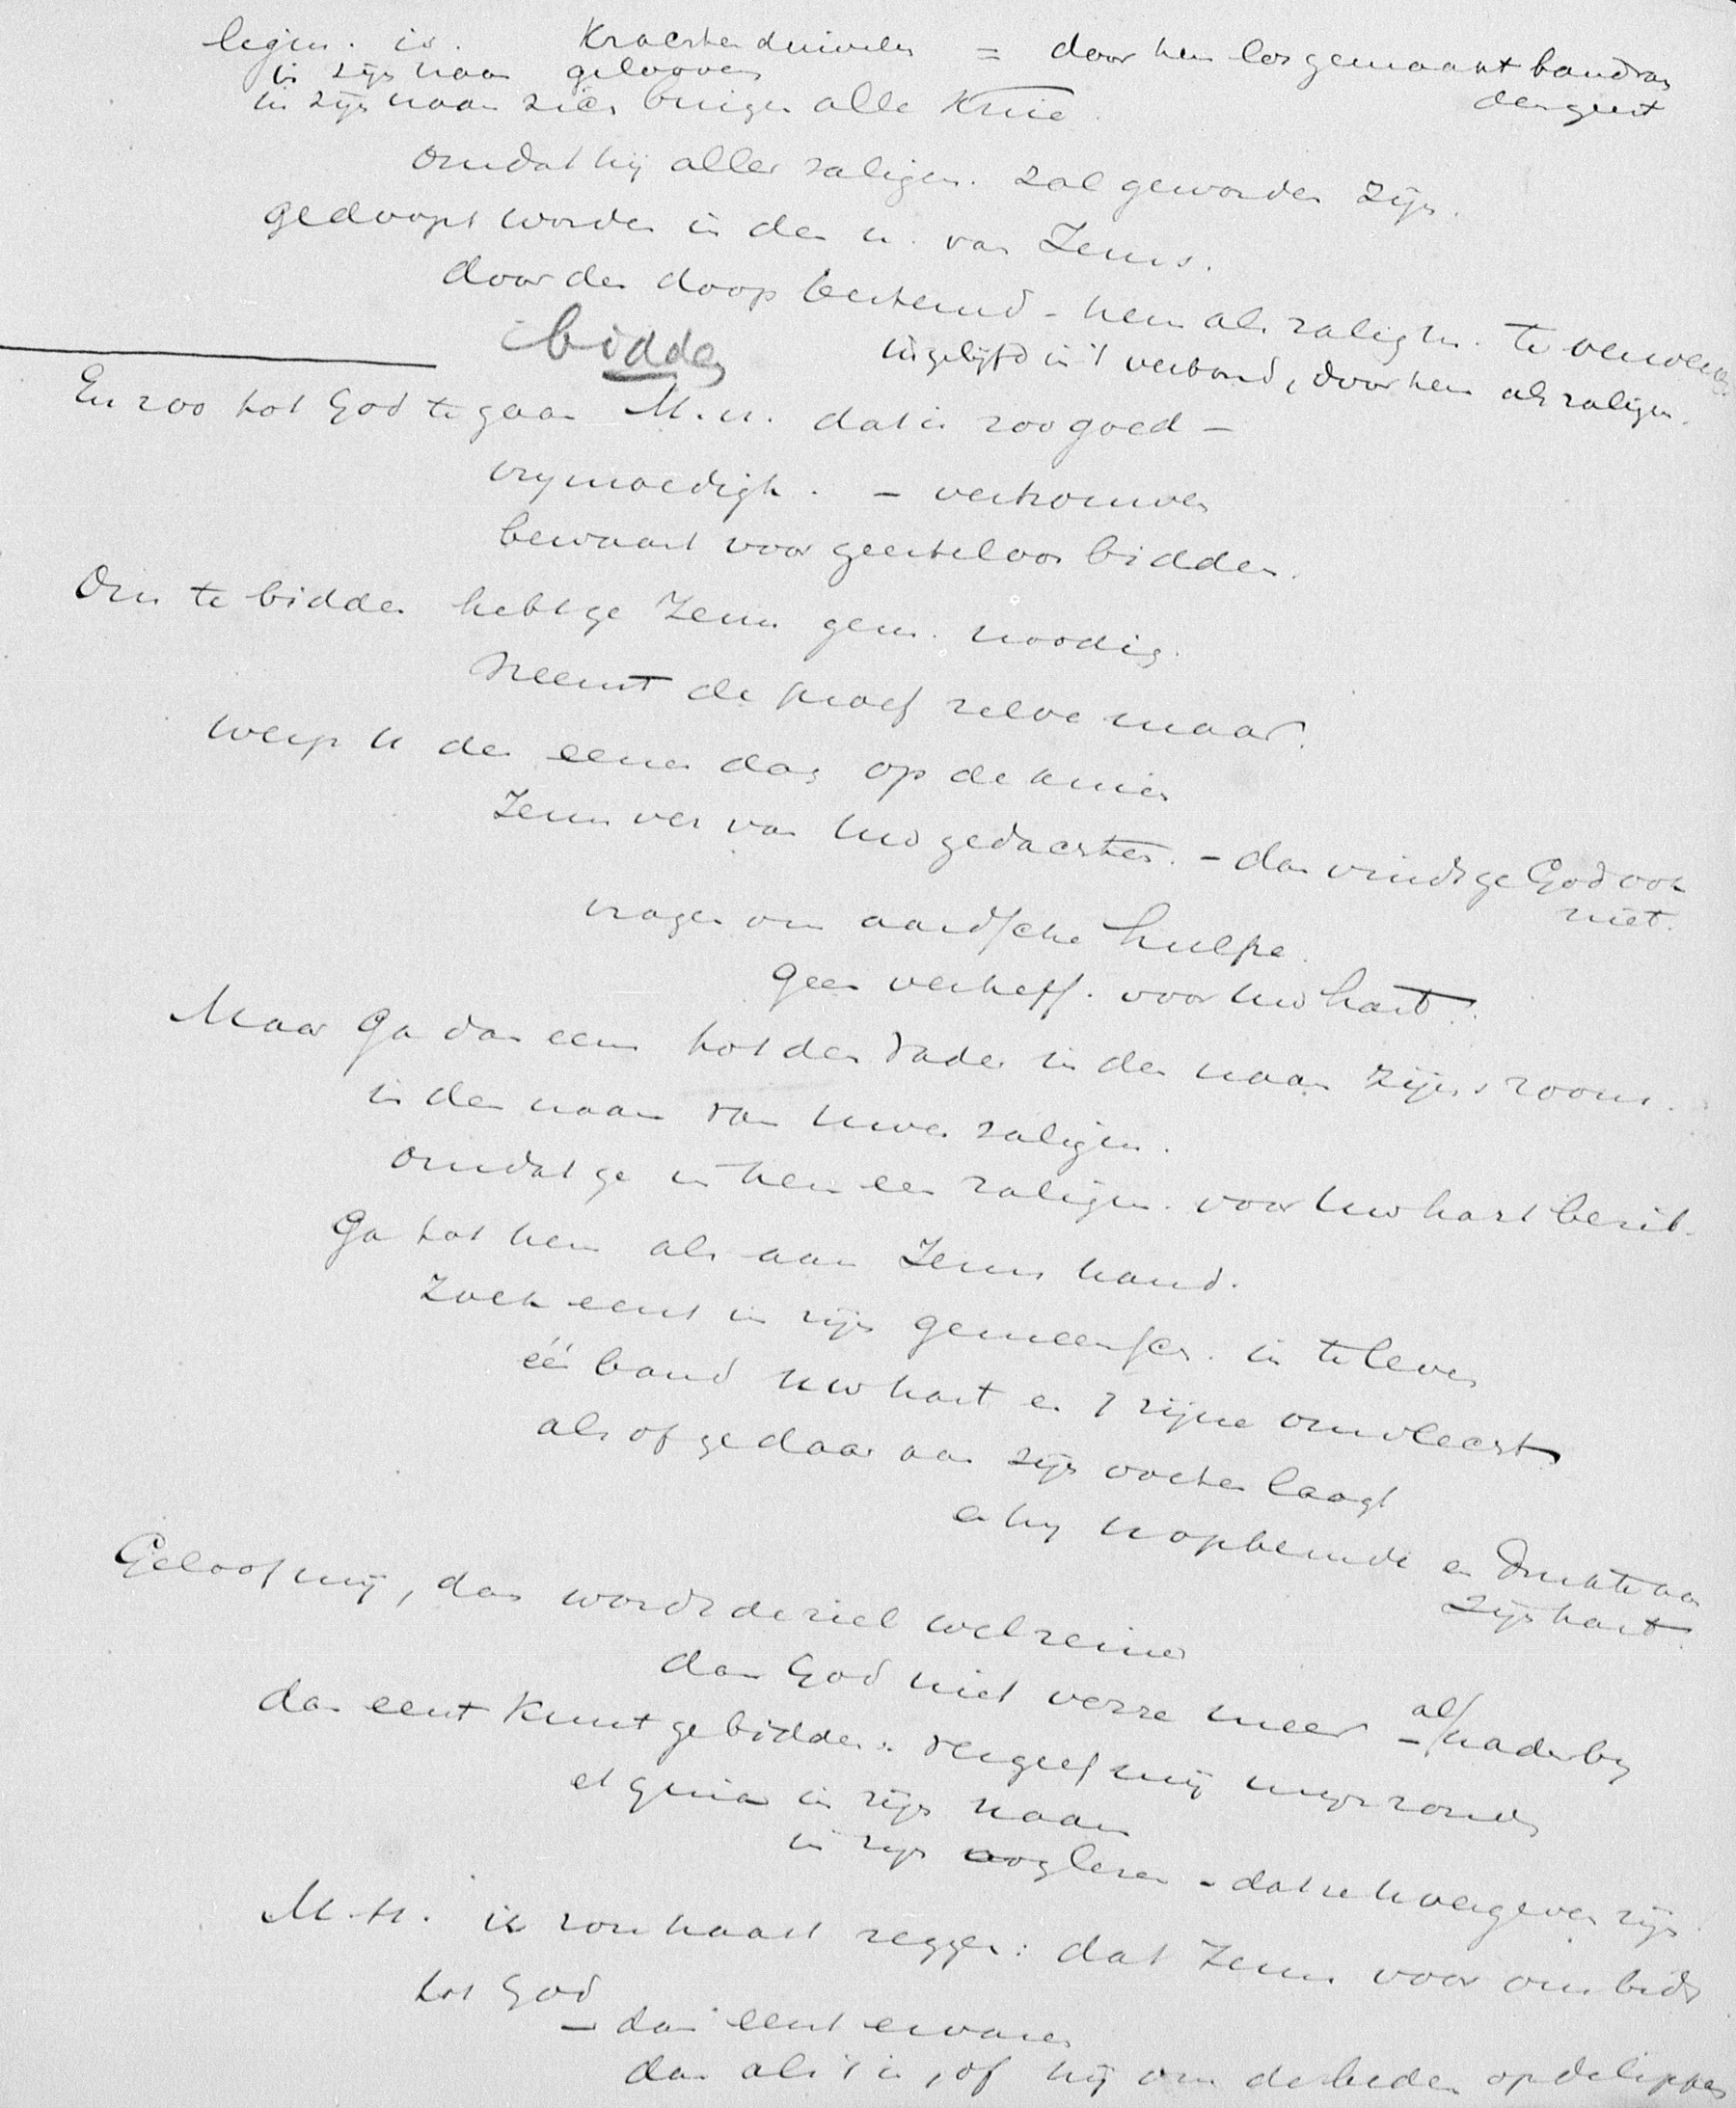 legen. is. Krachten duivelen = door hem losgemaakt banden
in zijn naam gelooven
den geest
in zijn naam zich buigen alle Knie.
omdat hij aller zaligm. zal geworden zijn.
gedoopt worden in den n. van Jezus.
door den doop bestemd - hem als zaligm. te
ingelijfd in 't verbond, door hem als zaligm.
- bidden
En zoo tot God te gaan M.H. dat is zoo goed -
vrijmoedigh. - vertrouwen
bewaart voor geesteloos bidden.
Om te bidden hebt ge Jezus gem. noodig.
Neemt de proef zelve maar.
werp u den eenen dag op de knieën
Jezus ver van uw gedachten. - dan vindt ge God ook
niet.
vragen om aardsche hulpe.
geen verheff. voor uw hart.
Maar ga dan eens tot den Vader in den naam zijns zoons.
in den naam van uwen zaligm.
omdat ge in hem een zaligm. voor uw hart bezit.
Ga tot hem als aan Jezus hand.
Zoek eerst in zijn gemeensch. in te leven
één band uw hart en 't zijne omvlecht
alsof ge daar aan zijn voeten laagt
en hij u opbeurde en drukte aan
zijn hart.
Geloof mij, dan wordt de ziel wel reiner
dan God niet verre meer - al nader bij
dan eerst kunt ge bidden: vergeef mij mijn zonden
et quia in zijn naam
in zijn oog lezen - dat ze u vergeven zijn
M.H. ik zou haast zeggen: dat Jezus voor ons bidt
tot God
- dan eerst ervaren
dan als 't is, of hij ons de beden op de lippen